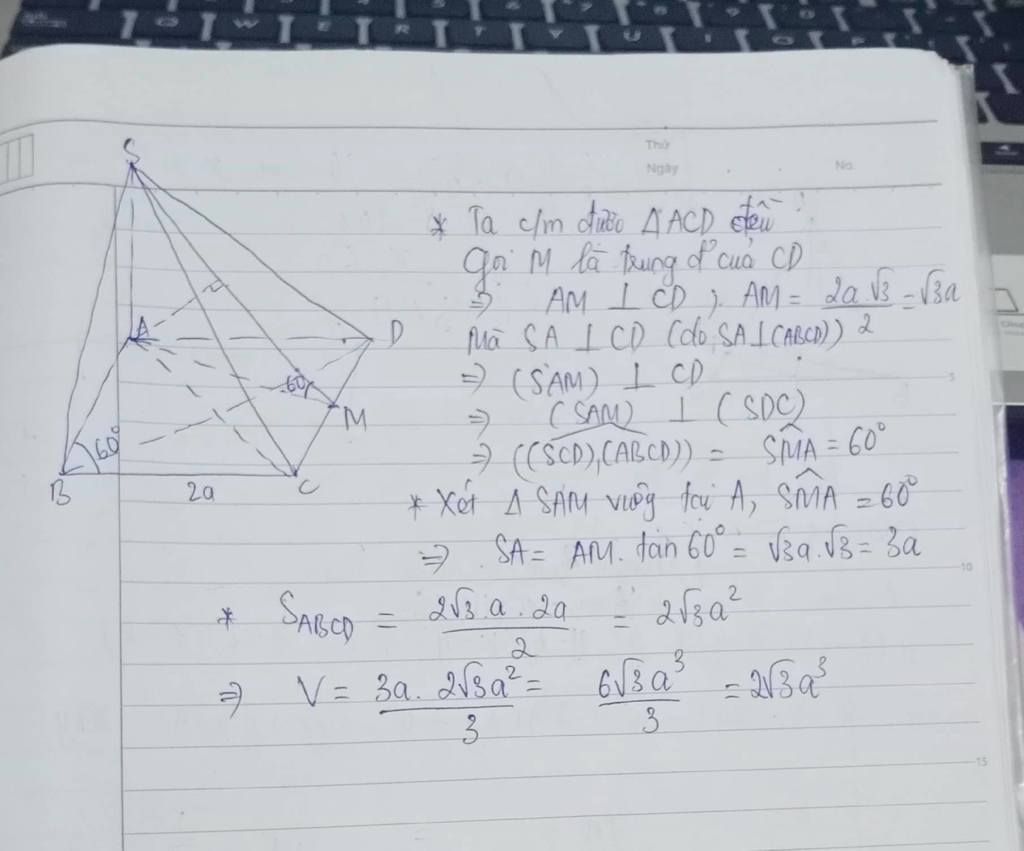 S
A
D
M
B
C
60°
60°
2a
Thứ
Ngày
No.
* Ta c/m được ΔACD đều
Gọi M là trung đ' của CD
⇒ AM ⊥ CD ; AM = 2a.√3/2 = √3a
Mà SA ⊥ CD (do SA⊥(ABCD))
⇒ (SAM) ⊥ CD
⇒ (SAM) ⊥ (SDC)
⇒ ((SCD),(ABCD)) = SMA = 60°
* Xét Δ SAM vuông tại A, SMA = 60°
⇒ SA = AM. tan 60° = √3a.√3 = 3a
* S_ABCD = 2√3.a.2a/2 = 2√3a²
⇒ V = 3a.2√3a²/3 = 6√3a³/3 = 2√3a³
5
10
15